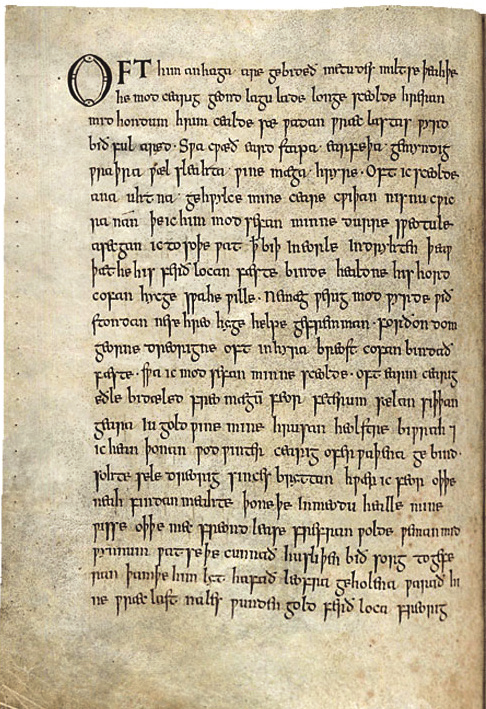 OFT him anhaga are gebideð metudes miltse þeahþe
he mod cearig geond lagu lade longe sceolde hreran
mid hondum hrim cealde sæ wadan wræc lastas wyrd
bið ful aræd· Swa cwæð eard stapa earfeþa· gemyndig
wraþra wæl sleahta wine mæga· hryre· Oft ic sceolde
ana uhtna gehwylce mine ceare cwiþan nis nu cwic
ra nān þe ic him mod sefan minne durre sweotule
asecgan ic to soþe wat ꝥ biþ in eorle indryhten þeaw
þæt he his ferð locan fæste binde healdne his hord
cofan hycge swa he wille· Ne mæg werig mod wyrde wið
stondan ne se hreo hyge helpe gefremman· forðon dom
georne dreorigne oft in hyra breost cofan bindað
fæste· swa ic mod sefan minne sceolde· oft earm cearig
eðle bidæled freo magū feor feterum sælan siþþan
geara iu gold wine mine hrusan heolstre biwrah ⁊
ic hean þonan wod winter cearig ofer waþena ge bind·
sohte sele dreorig sinces bryttan hwær ic feor oþþe
neah findan meahte þone þe in meodu healle mine
wisse oþþe mec freond lease frefran wolde weman mid
wynnum wat se þe cunnað hu sliþen bið sorg to gefe
ran þam þe him lyt hafað leofra geholena warað hi
ne wræc last nales wunden gold ferð loca freorig